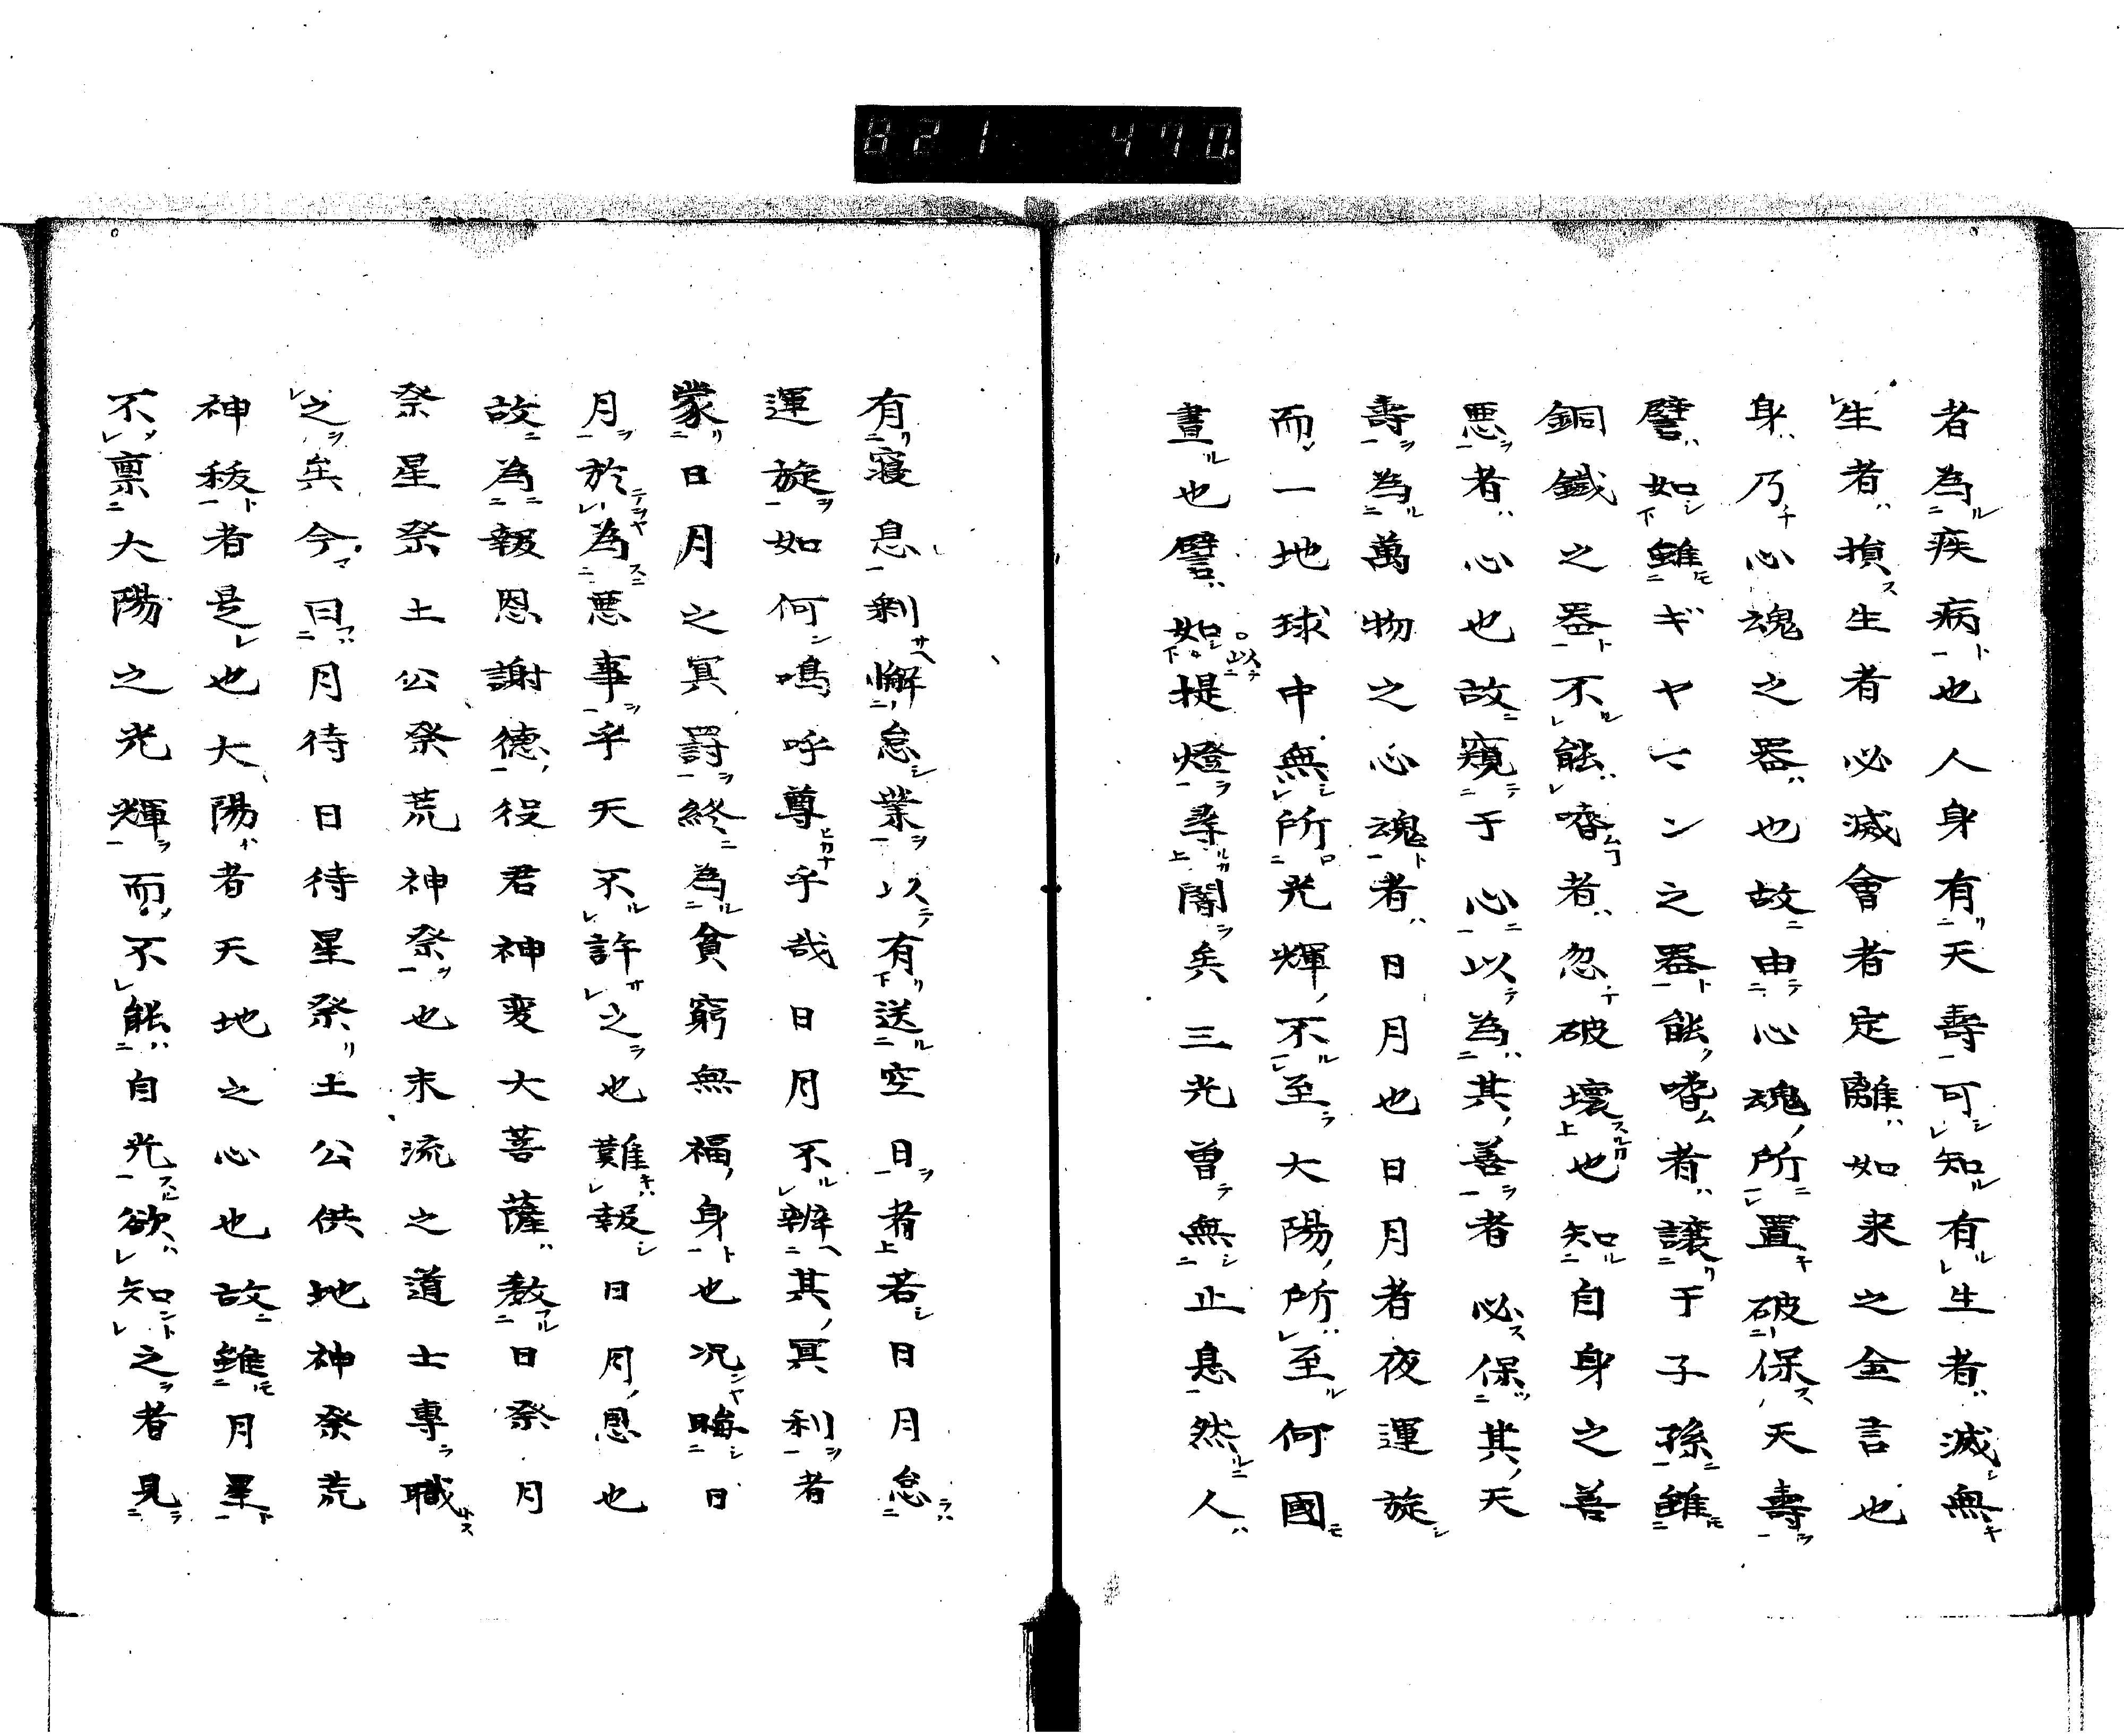 821 470
者為疾病也人身有天壽可知有生者滅無
生者損生者必滅會者定離如来之金言也
身乃心魂之器也故由心魂所置破保天壽
譬如雖ギヤマン之器能嗜者譲于子孫雖
銅鐵之器不能嗜者忽破壊也知自身之善
悪者心也故窺于心以為其善者必保其天
壽為萬物之心魂者日月也日月者夜運旋
而一地球中無所光輝不至大陽所至何國
晝也譬如以提燈尋闇矣三光曽無止息然人
有寝息剰懈怠業以有送空日者若日月怠
運旋如何嗚呼尊乎哉日月不辨其冥利者
蒙日月之冥罸終為貧窮無福身也况晦日
月於為悪事乎天不許之也難報日月恩也
故為報恩謝德役君神変大菩薩教日祭月
祭星祭土公祭荒神祭也末流之道士專職
之矣今曰月待日待星祭土公供地神祭荒
神秡者是也大陽者天地之心也故雖月星
不禀大陽之光輝而不能自光欲知之者見